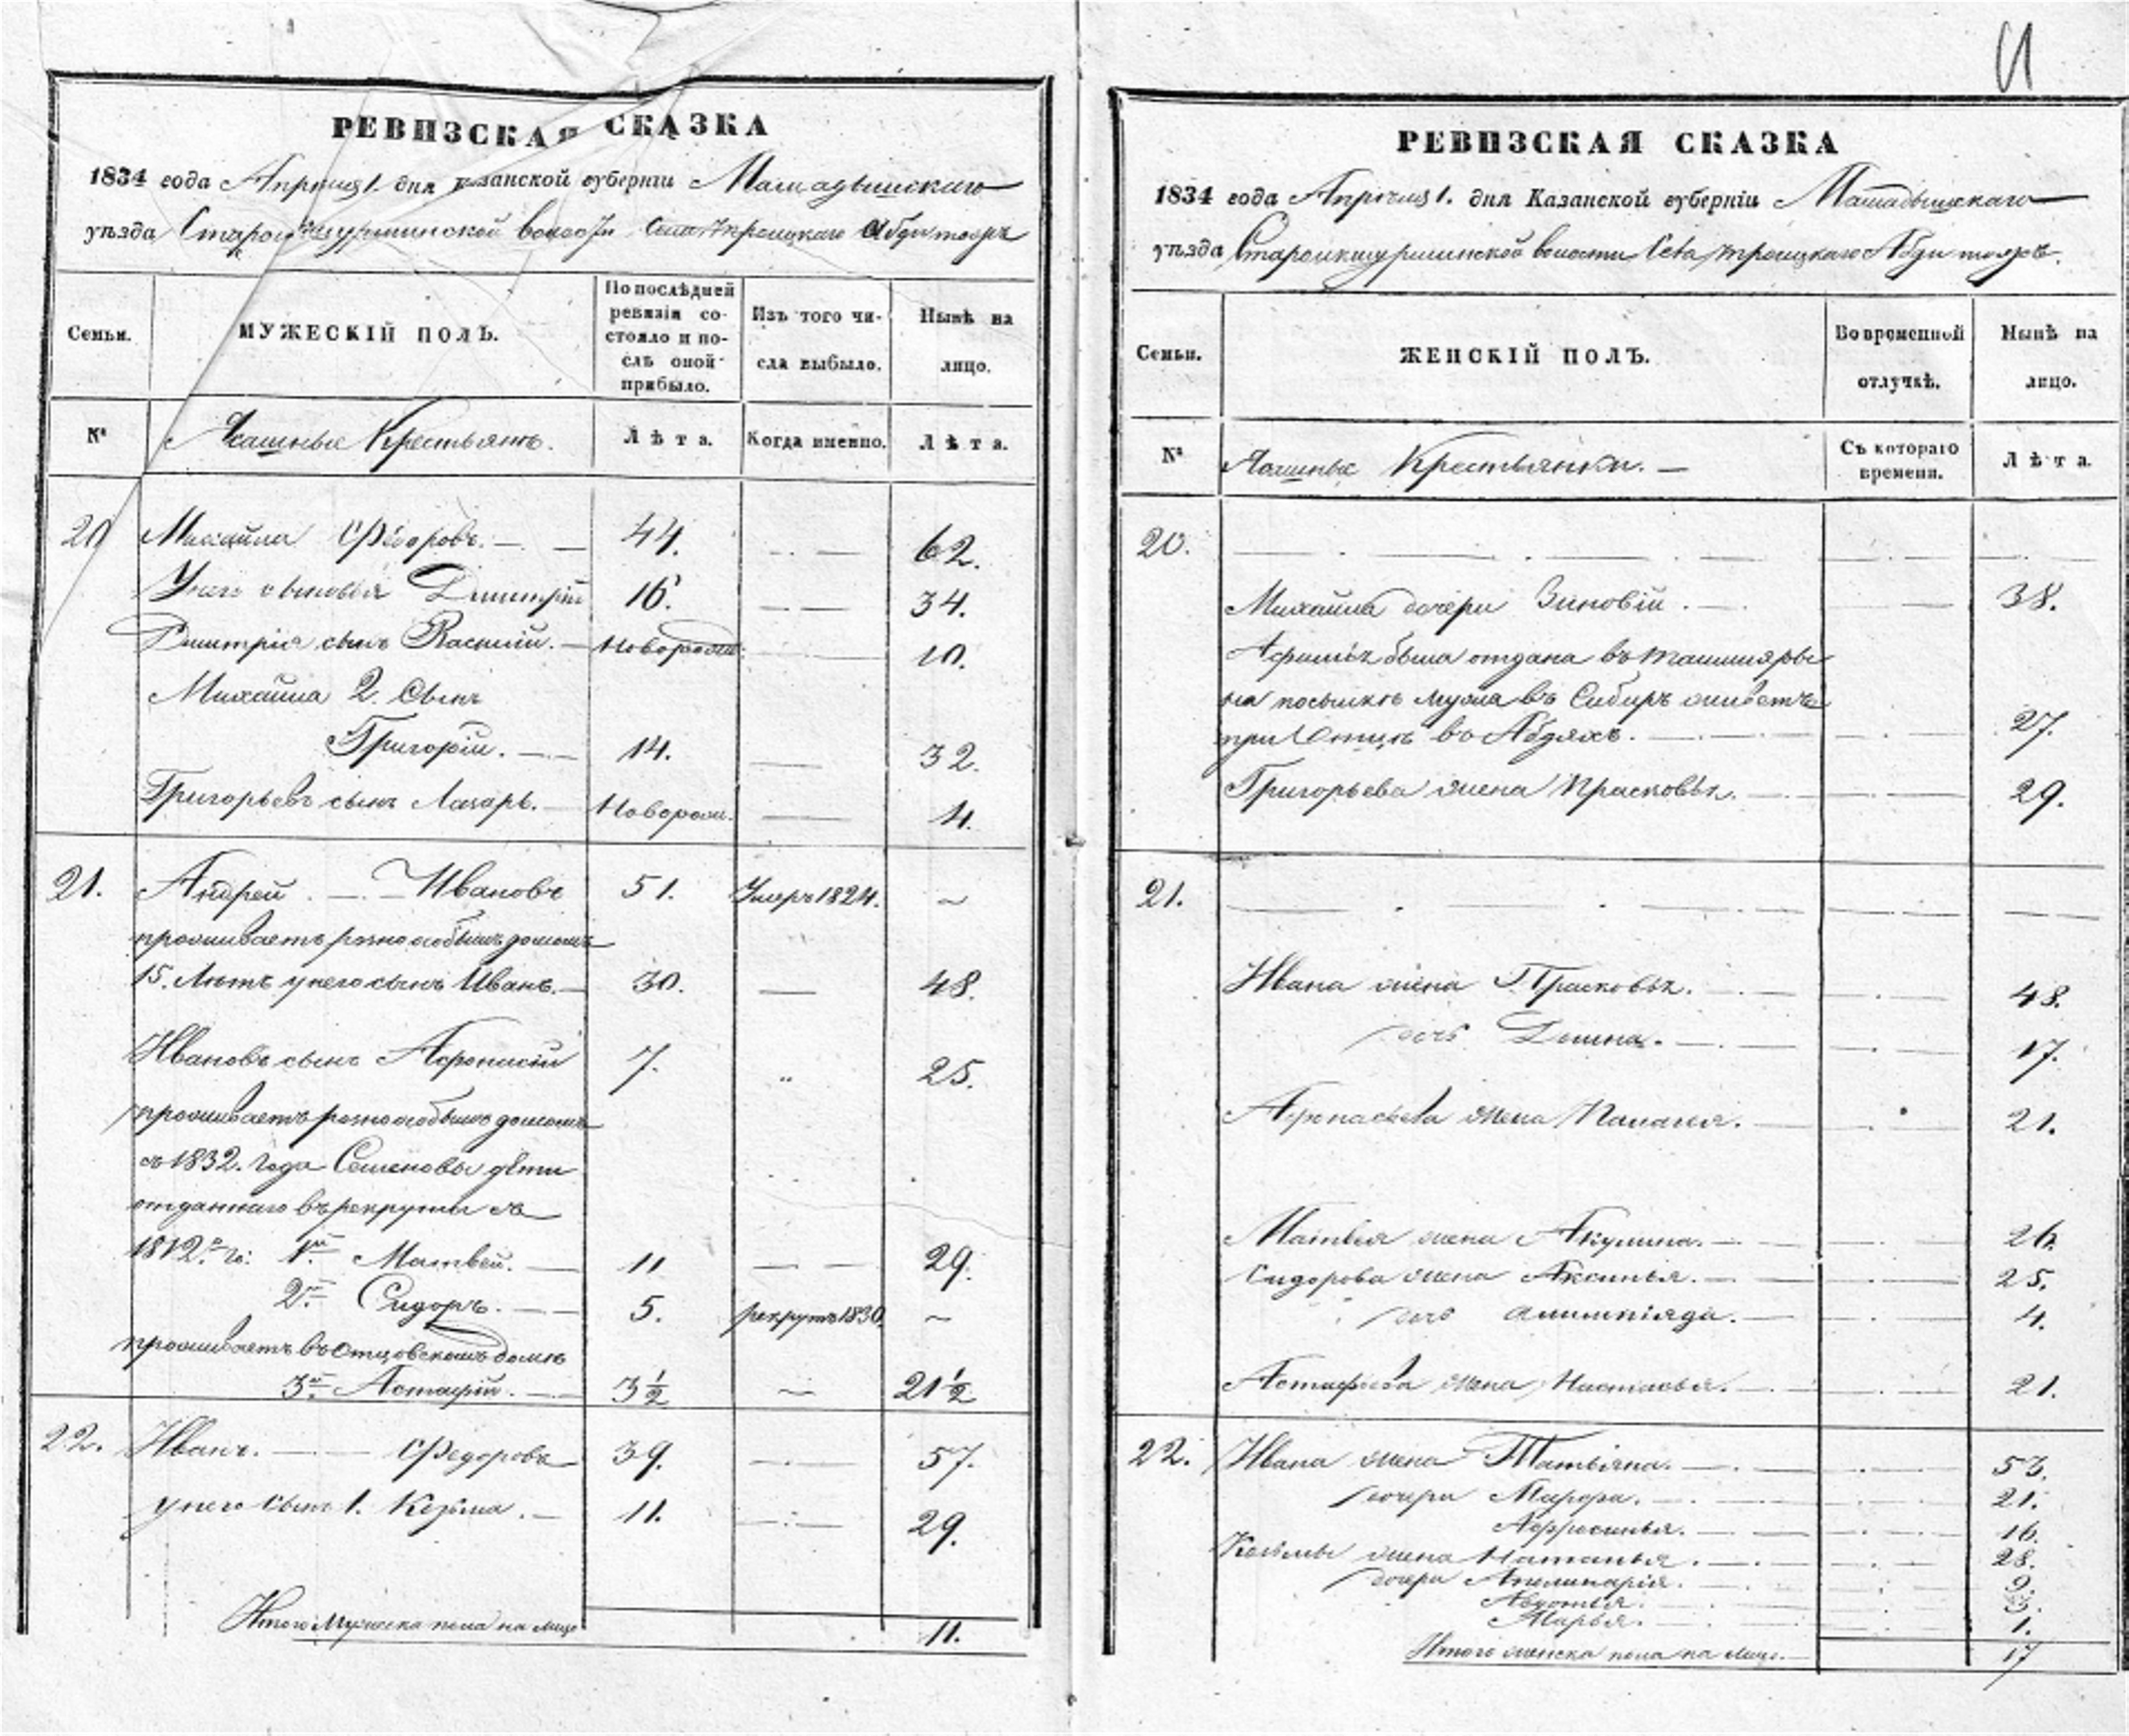 И
РЕВИЗСКАЯ СКАЗКА
1834 года Апреля 1. дня Казанской губерніи Мамадышскаго
уѣзда Староикшурминской волости Села Троицкаго Абди тожъ
Семьи.
МУЖЕСКІЙ ПОЛЪ.
По послѣдней
ревизіи со-
стояло и по-
слѣ оной
прибыло.
Изъ того чи-
сла выбыло.
Нынѣ на
лицо.
№
Ясашные Крестьяне.
Лѣта.
Когда именно.
Лѣта.
20 Михайла Ѳедоровъ. 44. 62.
У него сыновья Димитрій 16. 34.
Димитрія сынъ Василій. Новорожд. 10.
Михайла 2. Сынъ
Григорій. 14. 32.
Григорьевъ сынъ Лазарь. Новорож. 4.
21. Андрей Ивановъ 51. Умеръ 1824.
проживаетъ розно особымъ домомъ
15. Лѣтъ у него сынъ Иванъ. 30. 48.
Ивановъ сынъ Афонасій 7. 25.
проживаетъ розно особымъ домомъ
съ 1832. Года Семеновы дѣти
отданнаго въ рекруты въ
1812 го. 1й Матвей. 11 29.
2й Сидоръ. 5. рекрутъ 1830.
проживаетъ въ Отцовскомъ домѣ
3й Астафій. 3½ 21½
22. Иванъ. Ѳедоровъ 39. 57.
у него Сынъ 1. Козьма. 11. 29.
Итого Мужеска пола на лицо 11.
РЕВИЗСКАЯ СКАЗКА
1834 года Апреля 1. дня Казанской губерніи Мамадышскаго
уѣзда Староикшурминской волости Села Троицкаго Абди тожъ.
Семьи.
ЖЕНСКІЙ ПОЛЪ.
Во временной
отлучкѣ.
Нынѣ на
лицо.
№
Ясашные Крестьянки.
Съ котораго
времени.
Лѣта.
20.
Михайла дочери Зиновіи. 38.
была отдана въ
на посылкѣ мужа въ Сибирь живетъ
при Отцѣ во Абдяхъ. 27.
Григорьева жена Прасковья. 29.
21.
Ивана жена Прасковья. 48.
дочь Домна. 17.
Афонасьева жена Палагея. 21.
Матвея жена Акулина. 26.
Сидорова жена Аксинья. 25.
дочь Алимпіяда. 4.
Астафьева жена Настасья. 21.
22. Ивана жена Татьяна. 53.
дочери Марфа. 21.
Афросинья. 16.
Козьмы жена Наталья. 28.
дочери Апелинарія. 9.
Авдотья. 3.
Марья. 1.
Итого женска пола на лицо. 17